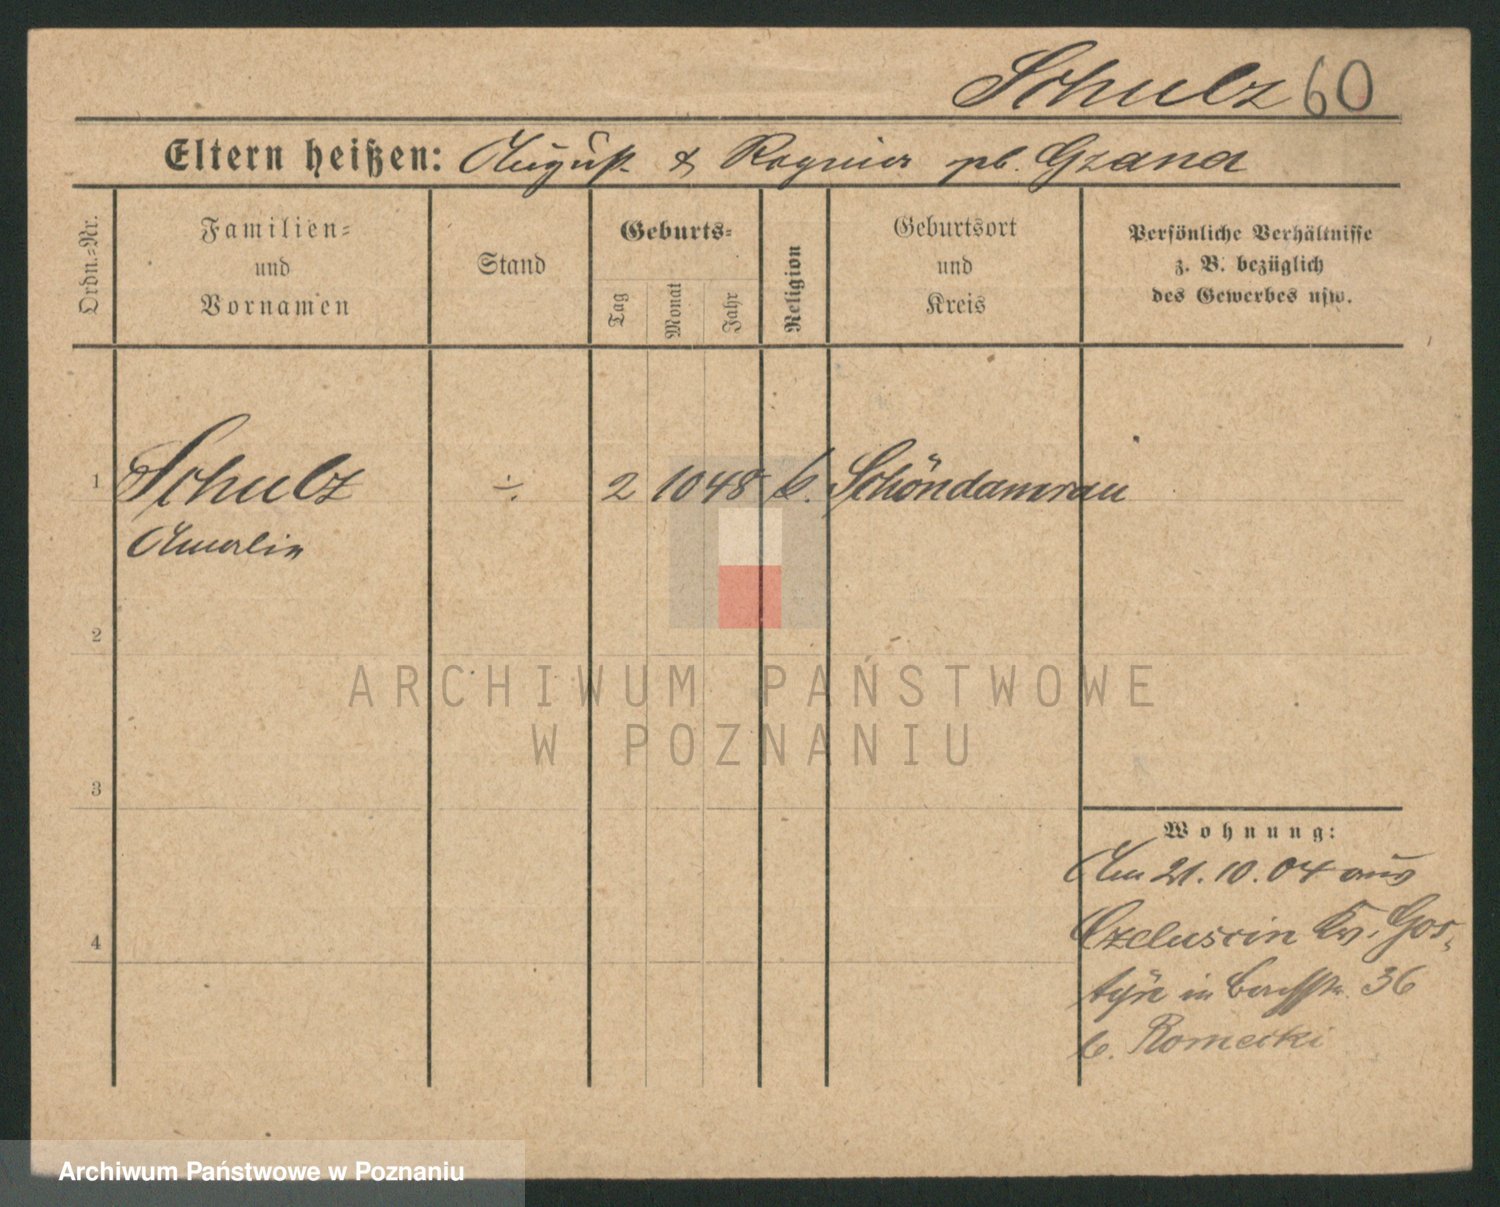 Schulz 60
Eltern heißen: August & Regina gb. Gzana
Ordn.-Nr.
Familien-
und
Vornamen
Stand
Geburts-
Tag
Monat
Jahr
Religion
Geburtsort
und
Kreis
Persönliche Verhältnisse
z. B. bezüglich
des Gewerbes usw.
1 Schulz ÷ 2 10 48 k. Schöndamerau
Amalie
2
3
4
Wohnung:
Am 21.10.04 aus
Czeluscin Kr. Gos-
tyn in 36
b. Romecki
ARCHIWUM PAŃSTWOWE
W POZNANIU
Archiwum Państwowe w Poznaniu